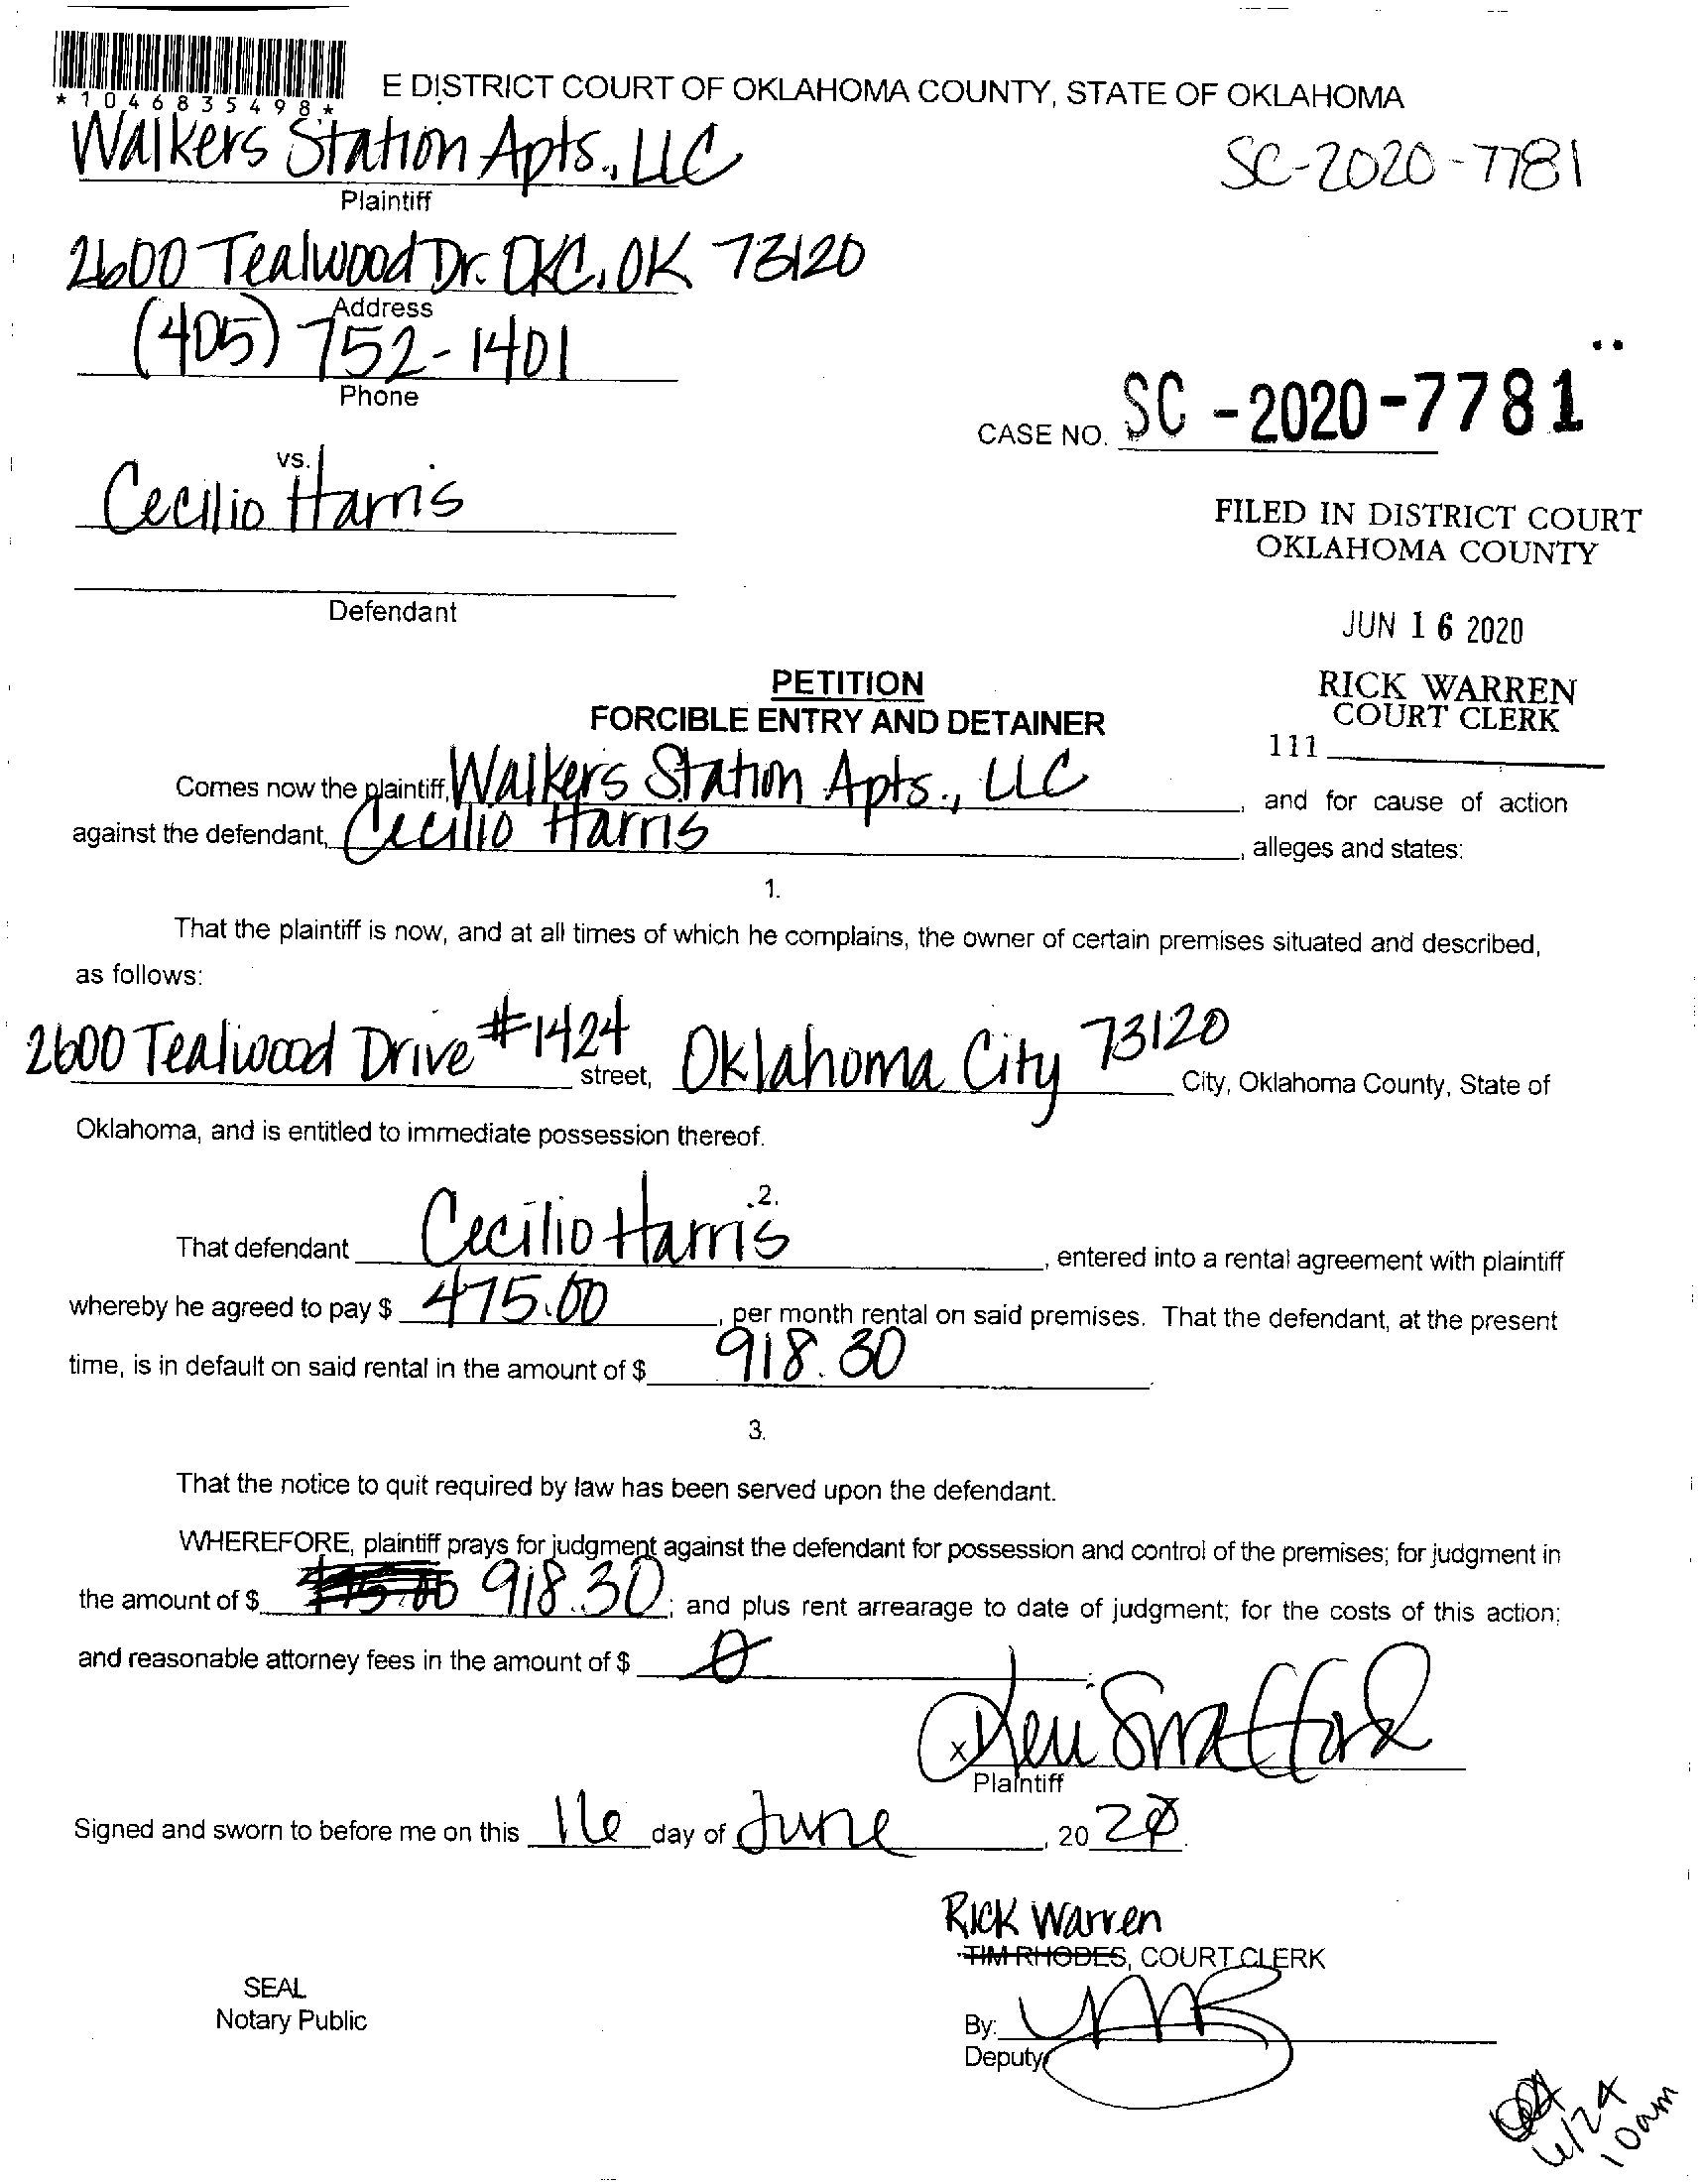 *1046835498*
E DISTRICT COURT OF OKLAHOMA COUNTY, STATE OF OKLAHOMA
Walkers Station Apts., LLC
SC-2020-7781
Plaintiff
2600 Tealwood Dr. OKC, OK 73120
Address
(405) 752-1401
Phone
CASE NO. SC-2020-7781
vs.
Cecilio Harris
FILED IN DISTRICT COURT
OKLAHOMA COUNTY
Defendant
JUN 16 2020
PETITION
RICK WARREN
FORCIBLE ENTRY AND DETAINER
COURT CLERK
111
Comes now the plaintiff, Walkers Station Apts., LLC, and for cause of action
against the defendant, Cecilio Harris, alleges and states:
1.
That the plaintiff is now, and at all times of which he complains, the owner of certain premises situated and described,
as follows:
2600 Tealwood Drive #1424 street, Oklahoma City 73120 City, Oklahoma County, State of
Oklahoma, and is entitled to immediate possession thereof.
2.
That defendant Cecilio Harris, entered into a rental agreement with plaintiff
whereby he agreed to pay $ 475.00, per month rental on said premises. That the defendant, at the present
time, is in default on said rental in the amount of $ 918.30
3.
That the notice to quit required by law has been served upon the defendant.
WHEREFORE, plaintiff prays for judgment against the defendant for possession and control of the premises; for judgment in
the amount of $ 475.00 918.30; and plus rent arrearage to date of judgment; for the costs of this action;
and reasonable attorney fees in the amount of $ 0;
x
Plaintiff
Signed and sworn to before me on this 16 day of June, 2020.
Rick Warren
TIM RHODES, COURT CLERK
SEAL
Notary Public
By:
Deputy
6/24
10am